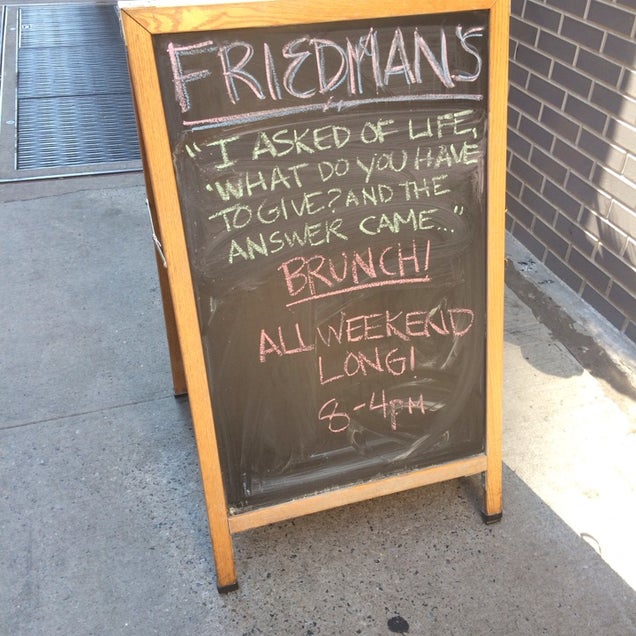 FRIEDMAN'S
"I ASKED OF LIFE,
'WHAT DO YOU HAVE
TO GIVE? AND THE
ANSWER CAME..."
BRUNCH!
ALL WEEKEND
LONG!
8-4PM